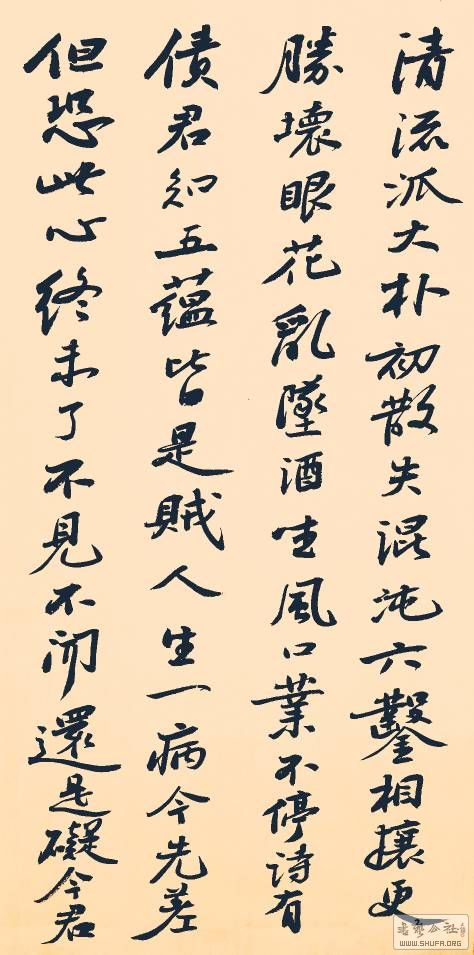 清流派大朴初散失混沌六鑿相攘更
勝壞眼花亂墜酒生風口業不停詩有
債君知五蘊皆是賊人生一病今先差
但恐此心終未了不見不聞還是礙今君
WWW.SHUFA.ORG